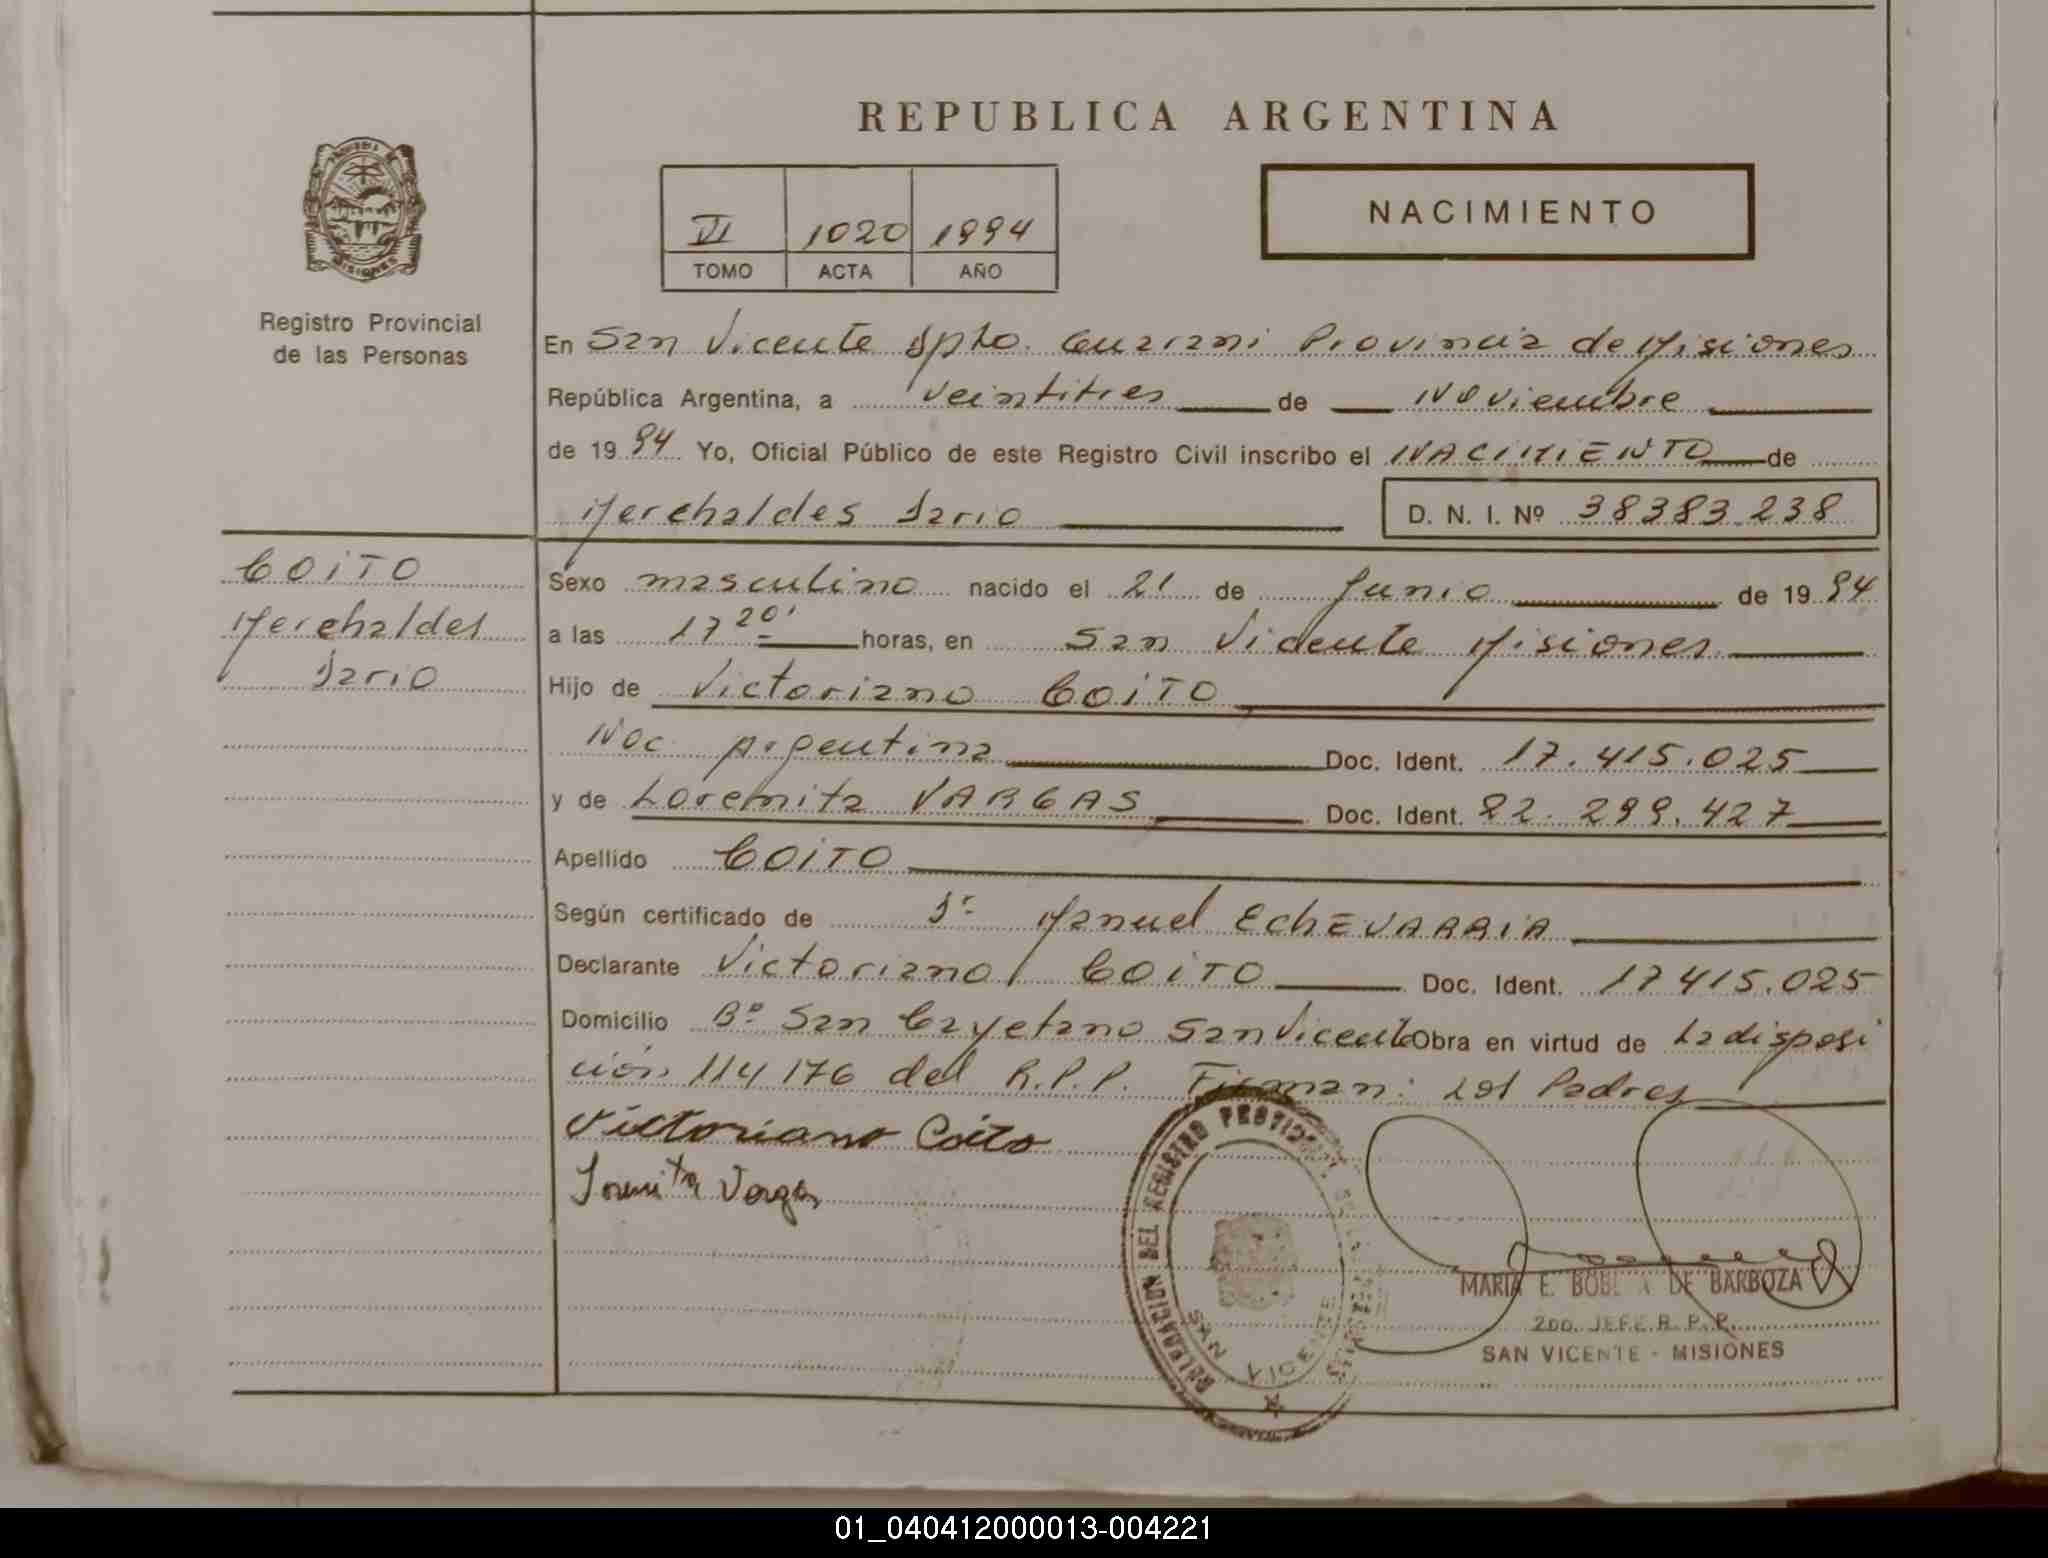 REPUBLICA ARGENTINA
PROVINCIA DE
MISIONES
Registro Provincial
de las Personas
NACIMIENTO
VI 1020 1994
TOMO ACTA AÑO
En San Vicente Dpto. Guarani Provincia de Misiones
República Argentina, a veintitres de Noviembre
de 1994 Yo, Oficial Público de este Registro Civil inscribo el NACIMIENTO de
Merehaldes Dario D. N. I. Nº 38383.238
COiTO
Merehaldes
Dario
Sexo masculino nacido el 21 de Junio de 1994
a las 17 20' horas, en San Vicente Misiones
Hijo de Victoriano COiTO
Nac Argentina Doc. Ident. 17.415.025
y de Loremita VARGAS Doc. Ident. 22.299.427
Apellido COiTO
Según certificado de Dr Manuel EchEVARRIA
Declarante Victoriano COiTO Doc. Ident. 17415.025
Domicilio Bº San Cayetano San Vicente Obra en virtud de La disposi
ción 114/76 del R.P.P. Firman: Los Padres
Victoriano Coito
Vargas
DELEGACION DEL REGISTRO
SAN VICENTE
MARIA E. DE BARBOZA
2DO. JEFE R. P. P.
SAN VICENTE - MISIONES
01_040412000013-004221